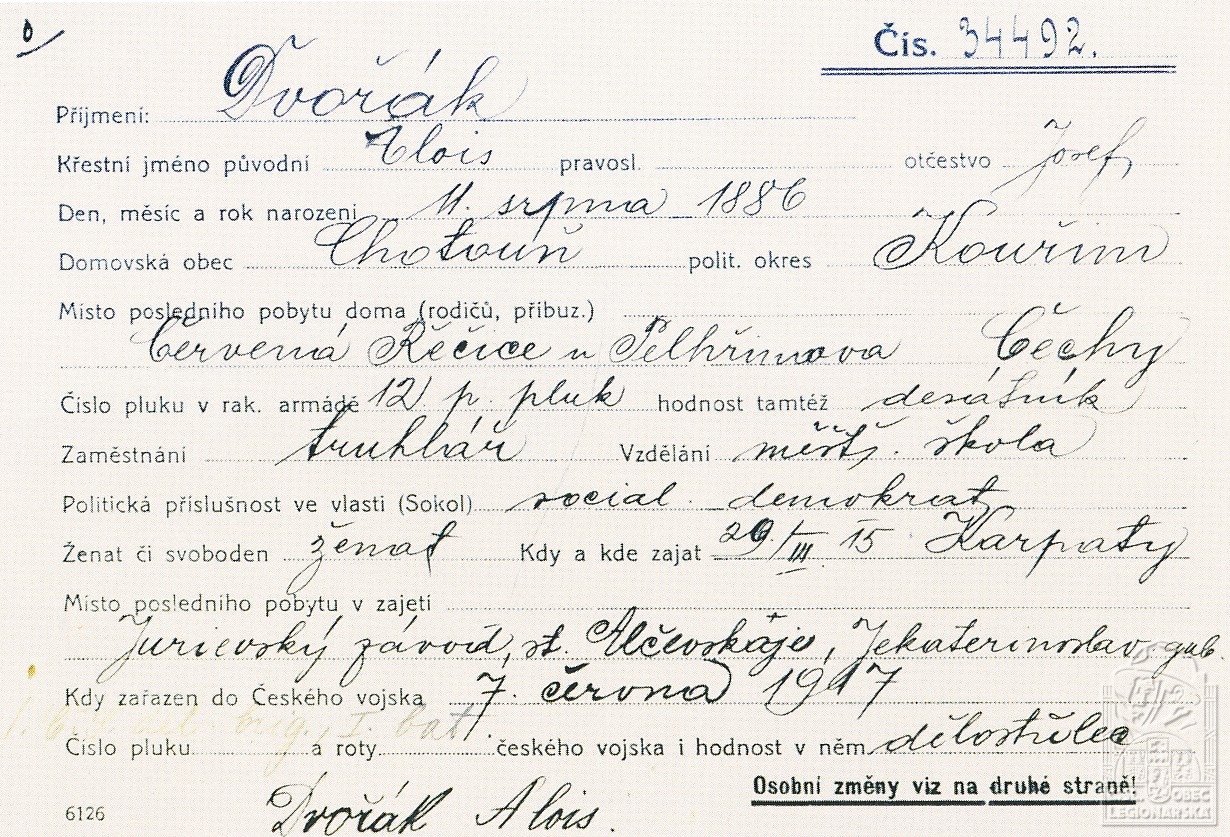 Čís. 34492.
Příjmení: Dvořák
Křestní jméno původní Alois pravosl. otčestvo Josef
Den, měsíc a rok narození 11. srpna 1886
Domovská obec Chotouň polit. okres Kouřim
Místo posledního pobytu doma (rodičů, příbuz.)
Červená Řečice u Pelhřimova Čechy
Číslo pluku v rak. armádě 12 p. pluk hodnost tamtéž desátník
Zaměstnání truhlář Vzdělání měšť. škola
Politická příslušnost ve vlasti (Sokol) social. demokrat
Ženat či svoboden ženat Kdy a kde zajat 29/III 15 Karpaty
Místo posledního pobytu v zajetí
Jurievský závod, st. Alčevskáje, Jekaterinoslav. gub.
Kdy zařazen do Českého vojska 7. června 1917
brig., I. bat.
Číslo pluku a roty českého vojska i hodnost v něm dělostřelec
Osobní změny viz na druhé straně!
6126 Dvořák Alois.
OBEC
LEGIONÁŘSKÁ